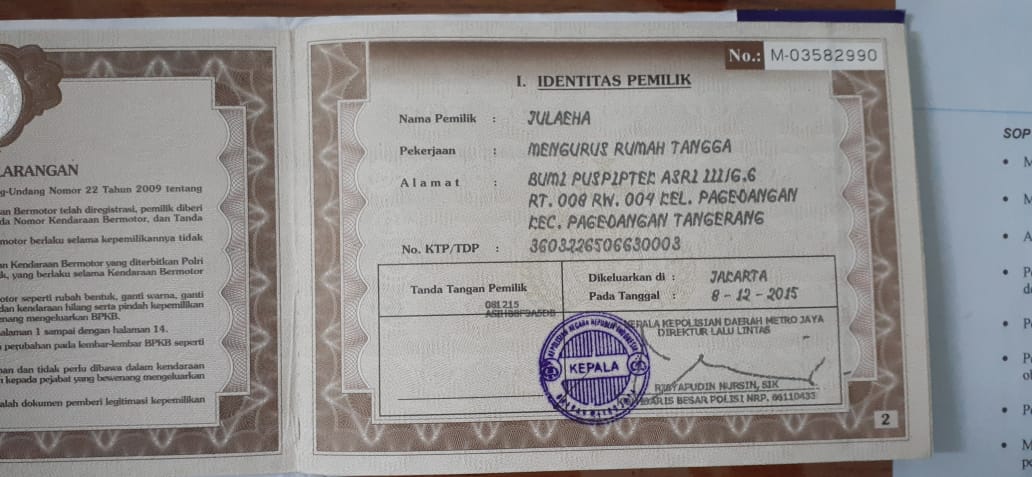 LARANGAN
g-Undang Nomor 22 Tahun 2009 tentang
an Bermotor telah diregistrasi, pemilik diberi
da Nomor Kendaraan Bermotor, dan Tanda
motor berlaku selama kepemilikannya tidak
an Kendaraan Bermotor yang diterbitkan Polri
k, yang berlaku selama Kendaraan Bermotor
otor seperti rubah bentuk, ganti warna, ganti
dan kendaraan hilang serta pindah kepemilikan
enang mengeluarkan BPKB.
alaman 1 sampai dengan halaman 14.
n perubahan pada lembar-lembar BPKB seperti
nan dan tidak perlu dibawa dalam kendaraan
n kepada pejabat yang berwenang mengeluarkan
alah dokumen pemberi legitimasi kepemilikan
No.: M-03582990
I. IDENTITAS PEMILIK
Nama Pemilik : JULAEHA
Pekerjaan : MENGURUS RUMAH TANGGA
Alamat : BUMI PUSPIPTEK ASRI III/G.6
RT. 008 RW. 004 KEL. PAGEDANGAN
KEC. PAGEDANGAN TANGERANG
No. KTP/TDP : 3603226506630003
Tanda Tangan Pemilik
081215
Dikeluarkan di : JAKARTA
Pada Tanggal : 8 - 12 - 2015
KEPALA KEPOLISIAN DAERAH METRO JAYA
DIREKTUR LALU LINTAS
KEPOLISIAN NEGARA REPUBLIK INDONESIA
KEPALA
NURSIN, SIK
KOMBARIS BESAR POLISI NRP. 66110433
2
SOP
• M
• M
• A
• P
d
• P
• P
ol
• P
• M
p